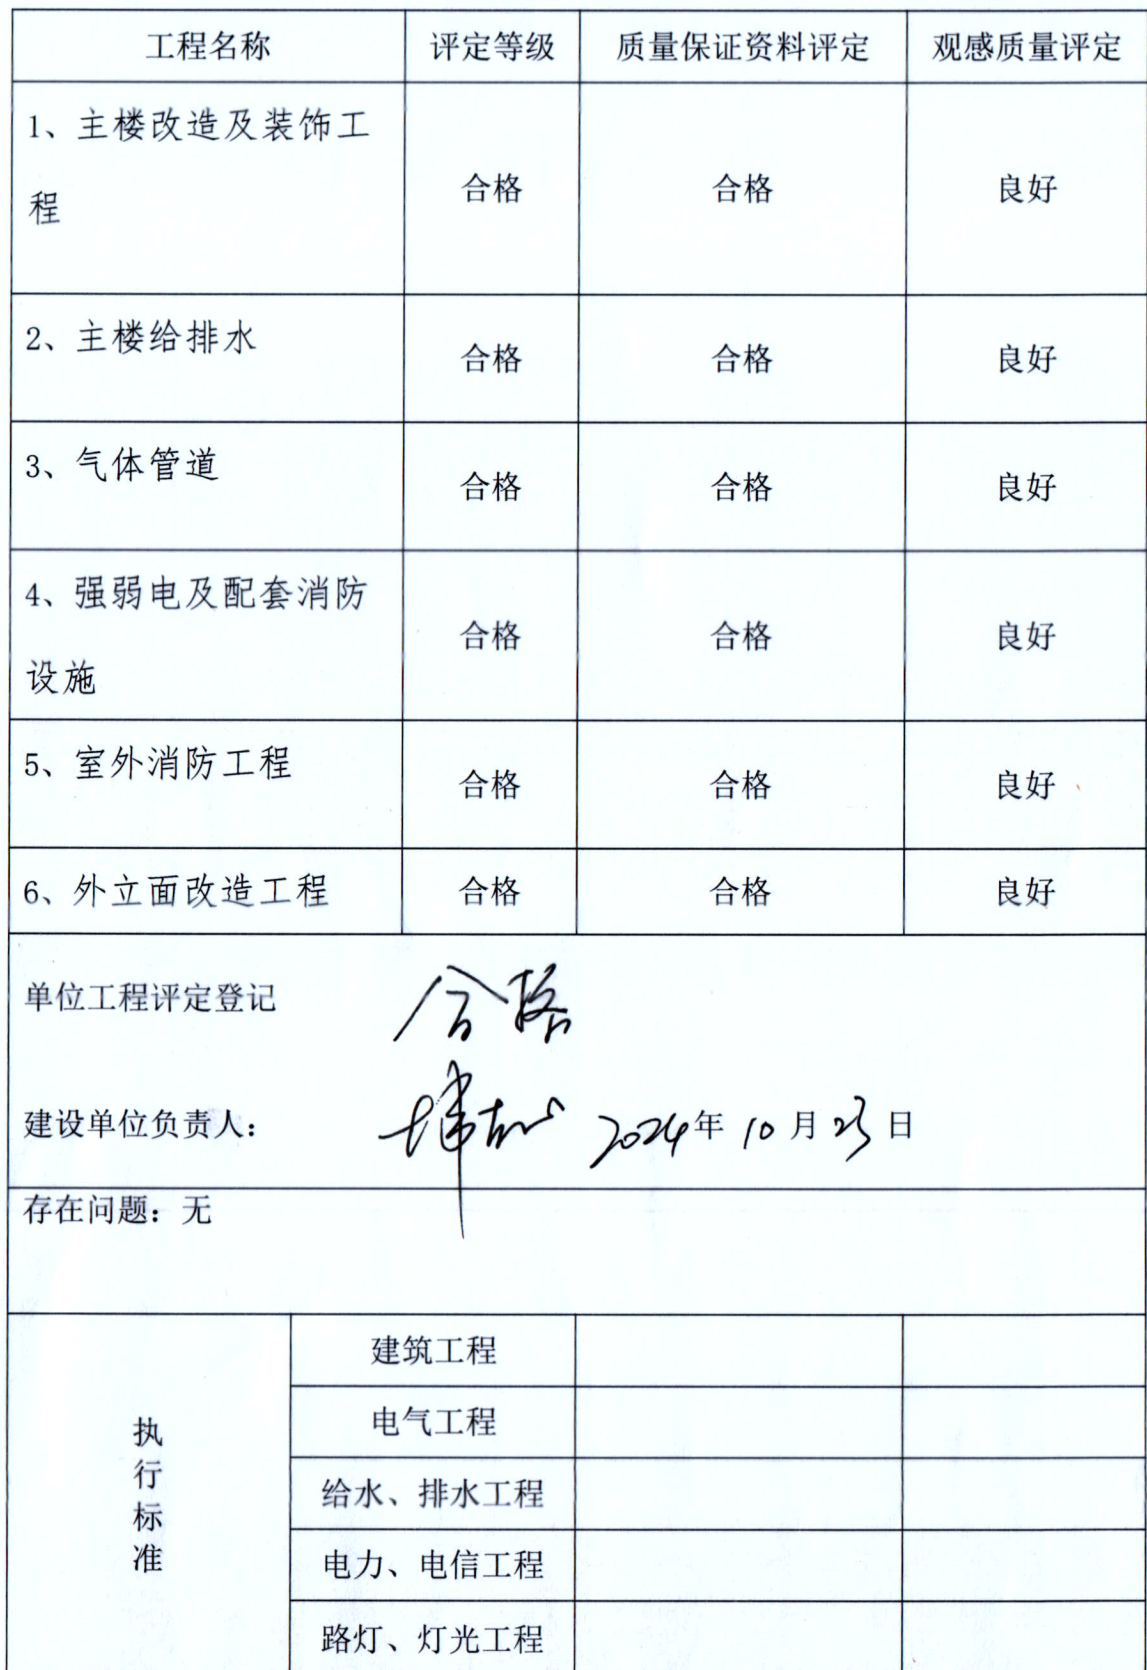 工程名称 评定等级 质量保证资料评定 观感质量评定
1、主楼改造及装饰工
程
合格 合格 良好
2、主楼给排水
合格 合格 良好
3、气体管道
合格 合格 良好
4、强弱电及配套消防
设施
合格 合格 良好
5、室外消防工程
合格 合格 良好
6、外立面改造工程 合格 合格 良好
单位工程评定登记 合格
建设单位负责人： 2024年 10 月 23 日
存在问题：无
执行标准
建筑工程
电气工程
给水、排水工程
电力、电信工程
路灯、灯光工程